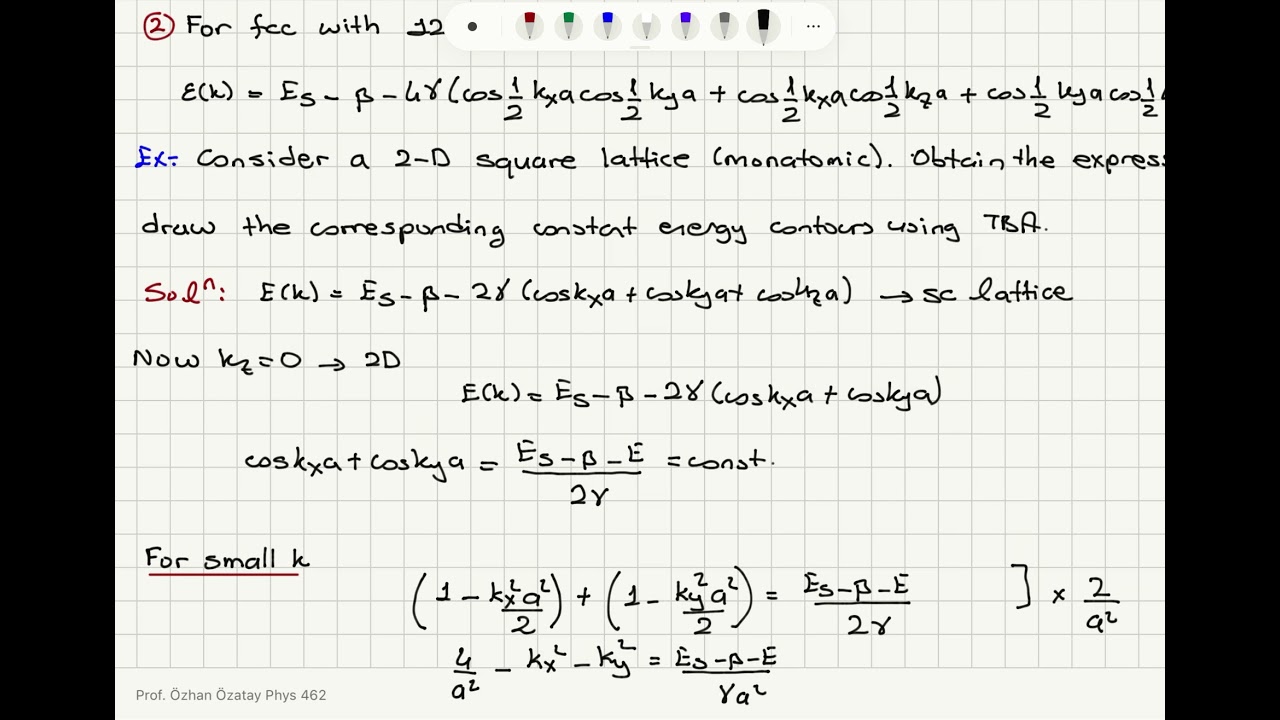 ② For fcc with 12
E(k) = Es - β - 4γ (cos 1/2 kxa cos 1/2 kya + cos 1/2 kxa cos 1/2 kza + cos 1/2 kya cos 1/2
Ex:- Consider a 2-D square lattice (monatomic). Obtain the express
draw the corresponding constat energy contours using TBA.
Solⁿ: E(k) = Es - β - 2γ (coskxa + coskya + coskza) → sc lattice
Now kz = 0 → 2D
E(k) = Es - β - 2γ (coskxa + coskya)
coskxa + coskya = (Es - β - E)/2γ = const.
For small k
(1 - kx²a²/2) + (1 - ky²a²/2) = (Es - β - E)/2γ ] × 2/a²
4/a² - kx² - ky² = (Es - β - E)/γa²
Prof. Özhan Özatay Phys 462